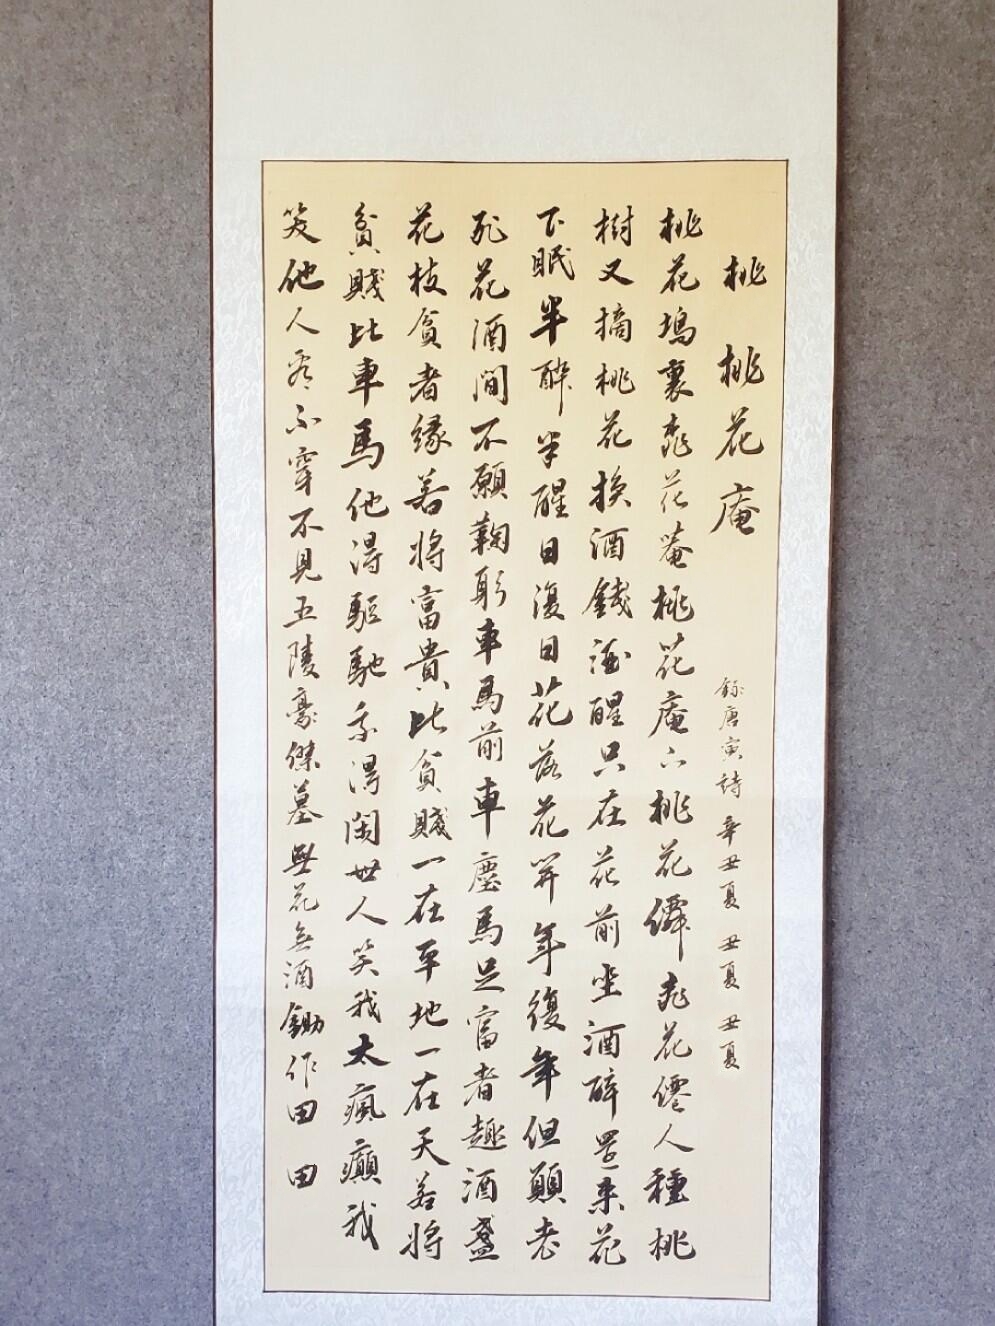 桃桃花庵
錄唐寅詩 辛丑夏 丑夏 丑夏
桃花塢裏桃花菴桃花庵下桃花僊桃花僊人種桃
樹又摘桃花換酒錢酒醒只在花前坐酒醉還來花
下眠半醉半醒日復日花落花開年復年但願老
死花酒間不願鞠躬車馬前車塵馬足富者趣酒盞
花枝貧者緣若將富貴比貧賤一在平地一在天若將
貧賤比車馬他得驅馳我得閑世人笑我太瘋癲我
笑他人看不穿不見五陵豪傑墓無花無酒鋤作田田